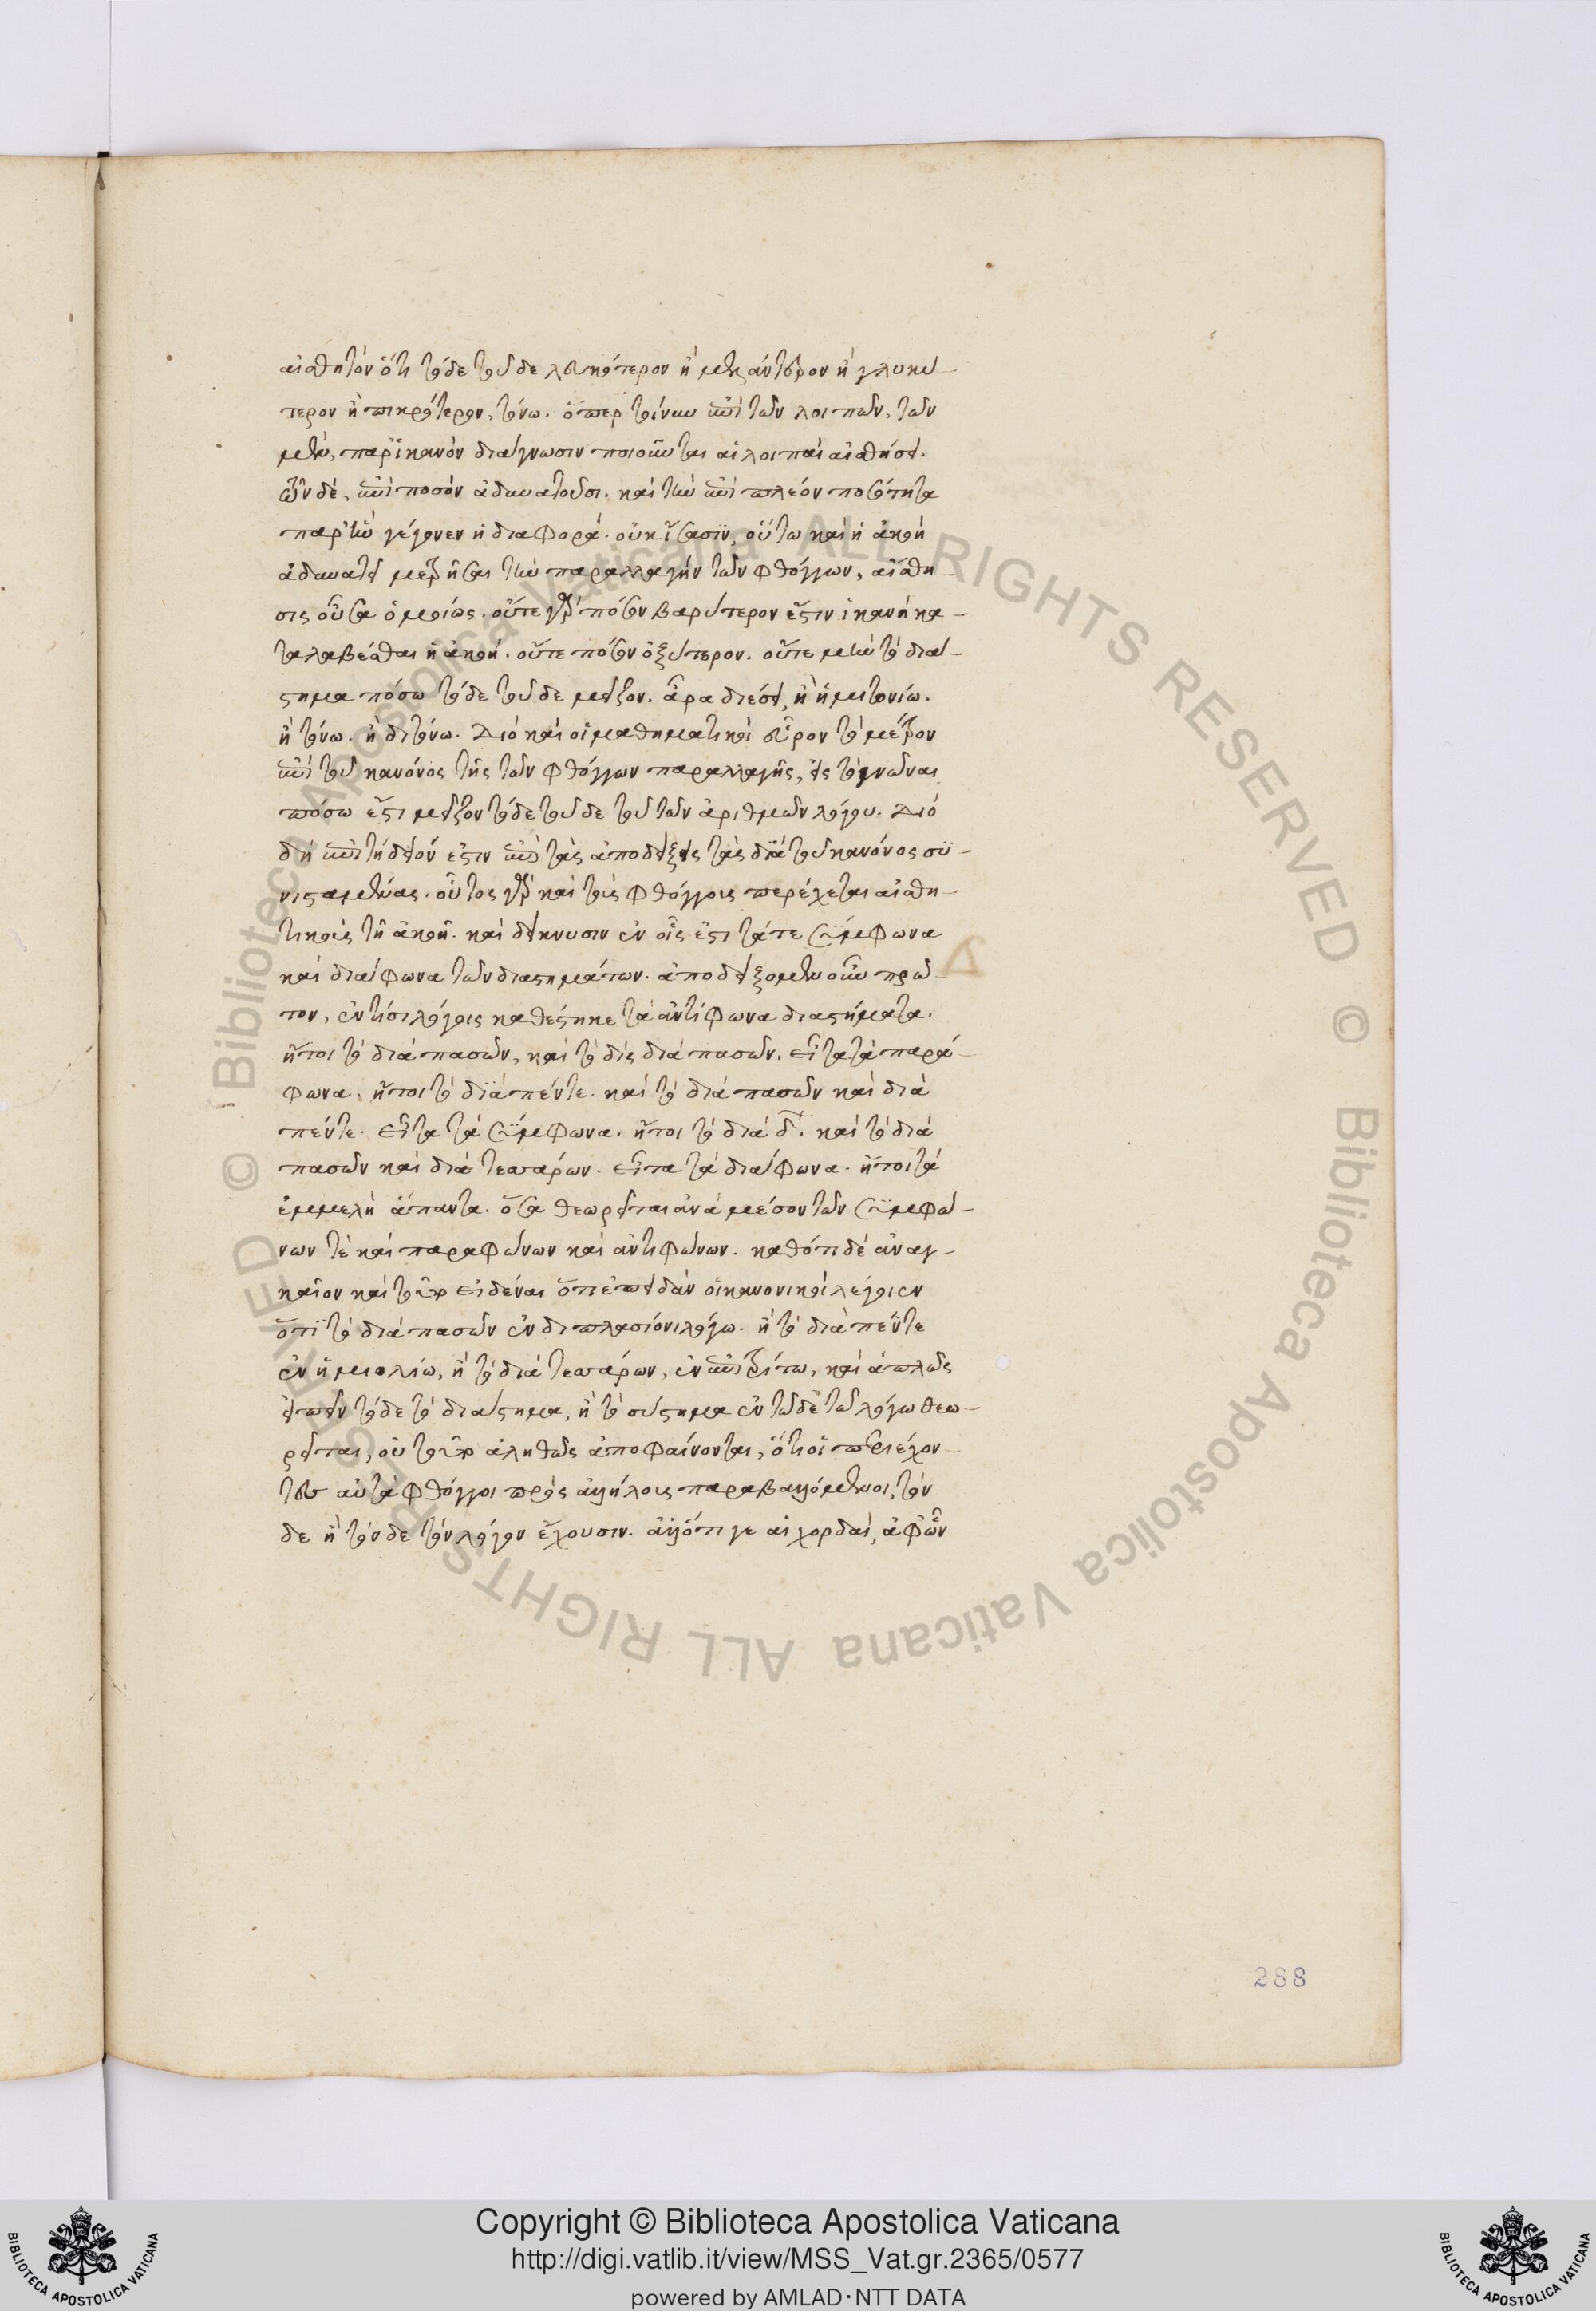 αἰσθητὸν ὅτι τόδε τοῦδε λευκότερον ἢ μελάντερον ἢ γλυκύ-
τερον ἢ πικρότερον, τόνω. ὅπερ τοίνυν ἐπὶ τῶν λοιπῶν, τῶν
μὲν, παρ ἱκανὸν διάγνωσιν ποιοῦνται αἱ λοιπαὶ αἰσθήσει.
ὧν δὲ, ἐπὶ ποσὸν ἀδυνατοῦσι. καὶ τὴν ἐπὶ πλέον ποσότητα
παρ ἣν γέγονεν ἡ διαφορά. οὐκ ἴσασιν, οὕτω καὶ ἡ ἀκοὴ
ἀδυνατεῖ μετρῆσαι τὴν παραλλαγὴν τῶν φθόγγων, αἴσθη-
σις οὖσα ὁμοίως. οὔτε γὰρ πόσον βαρύτερον ἔστιν ἱκανὴ κα-
ταλαβέσθαι ἡ ἀκοή. οὔτε πόσον ὀξύτερον. οὔτε μὴν τὸ διά-
στημα πόσω τόδε τοῦδε μεῖζον. ἆρα διέσει, ἢ ἡμιτονίω.
ἢ τόνω. ἢ διτόνω. Διὸ καὶ οἱ μαθηματικοὶ εὗρον τὸ μέτρον
ἐπὶ τοῦ κανόνος τῆς τῶν φθόγγων παραλλαγῆς, εἰς τὸ γνῶναι
πόσω ἔστι μεῖζον τόδε τοῦδε τοῦ τῶν ἀριθμῶν λόγου. Διὸ
δὴ ἐπιτήδειόν ἐστιν ἐπὶ τὰς ἀποδείξεις τὰς διὰ τοῦ κανόνος συ-
νισταμένας. οὗτος γὰρ καὶ τοῖς φθόγγοις περέχεται αἰσθη-
τικοῖς τῇ ἀκοῇ. καὶ δείκνυσιν ἐν οἷς ἐστι τά τε σύμφωνα
καὶ διάφωνα τῶν διαστημάτων. ἀποδείξομεν οὖν πρῶ-
τον, ἐν τίσι λόγοις καθέστηκε τὰ ἀντίφωνα διαστήματα.
ἤτοι τὸ διὰ πασῶν, καὶ τὸ δὶς διὰ πασῶν. εἶτα τὰ παρά-
φωνα. ἤτοι τὸ διὰ πέντε. καὶ τὸ διὰ πασῶν καὶ διὰ
πέντε. εἶτα τὰ σύμφωνα. ἤτοι τὸ διὰ δ. καὶ τὸ διὰ
πασῶν καὶ διὰ τεσσάρων. εἶτα τὰ διάφωνα. ἤτοι τὰ
ἐμμελῆ ἅπαντα. ὅσα θεωρεῖται ἀνὰ μέσον τῶν συμφώ-
νων τὲ καὶ παραφώνων καὶ ἀντιφώνων. καθότι δὲ ἀναγ-
καῖον καὶ τοῦτο εἰδέναι ὅτι ἐπειδὰν οἱ κανονικοὶ λέγοιεν
ὅτι τὸ διὰ πασῶν ἐν διπλασίονι λόγω. ἢ τὸ διὰ πέντε
ἐν ἡμιολίω, ἢ τὸ διὰ τεσσάρων, ἐν ἐπιτρίτω, καὶ ἁπλῶς
εἰπεῖν τόδε τὸ διάστημα, ἢ τὸ σύστημα ἐν τῶδε τῶ λόγω θεω-
ρεῖται, οὐ τοῦτο ἀληθῶς ἀποφαίνονται, ὅτι οἱ περιέχον-
τες αὐτὰ φθόγγοι πρὸς ἀλλήλοις παραβαλλόμενοι, τόν
δε ἢ τόνδε τὸν λόγον ἔχουσιν. ἀλλ ὅτι γε αἱ χορδαί, ἀφ ὧν
Δ
288
Copyright © Biblioteca Apostolica Vaticana
http://digi.vatlib.it/view/MSS_Vat.gr.2365/0577
powered by AMLAD·NTT DATA
BIBLIOTECA APOSTOLICA VATICANA
BIBLIOTECA APOSTOLICA VATICANA
© Biblioteca Apostolica Vaticana ALL RIGHTS RESERVED © Biblioteca Apostolica Vaticana ALL RIGHTS RESERVED